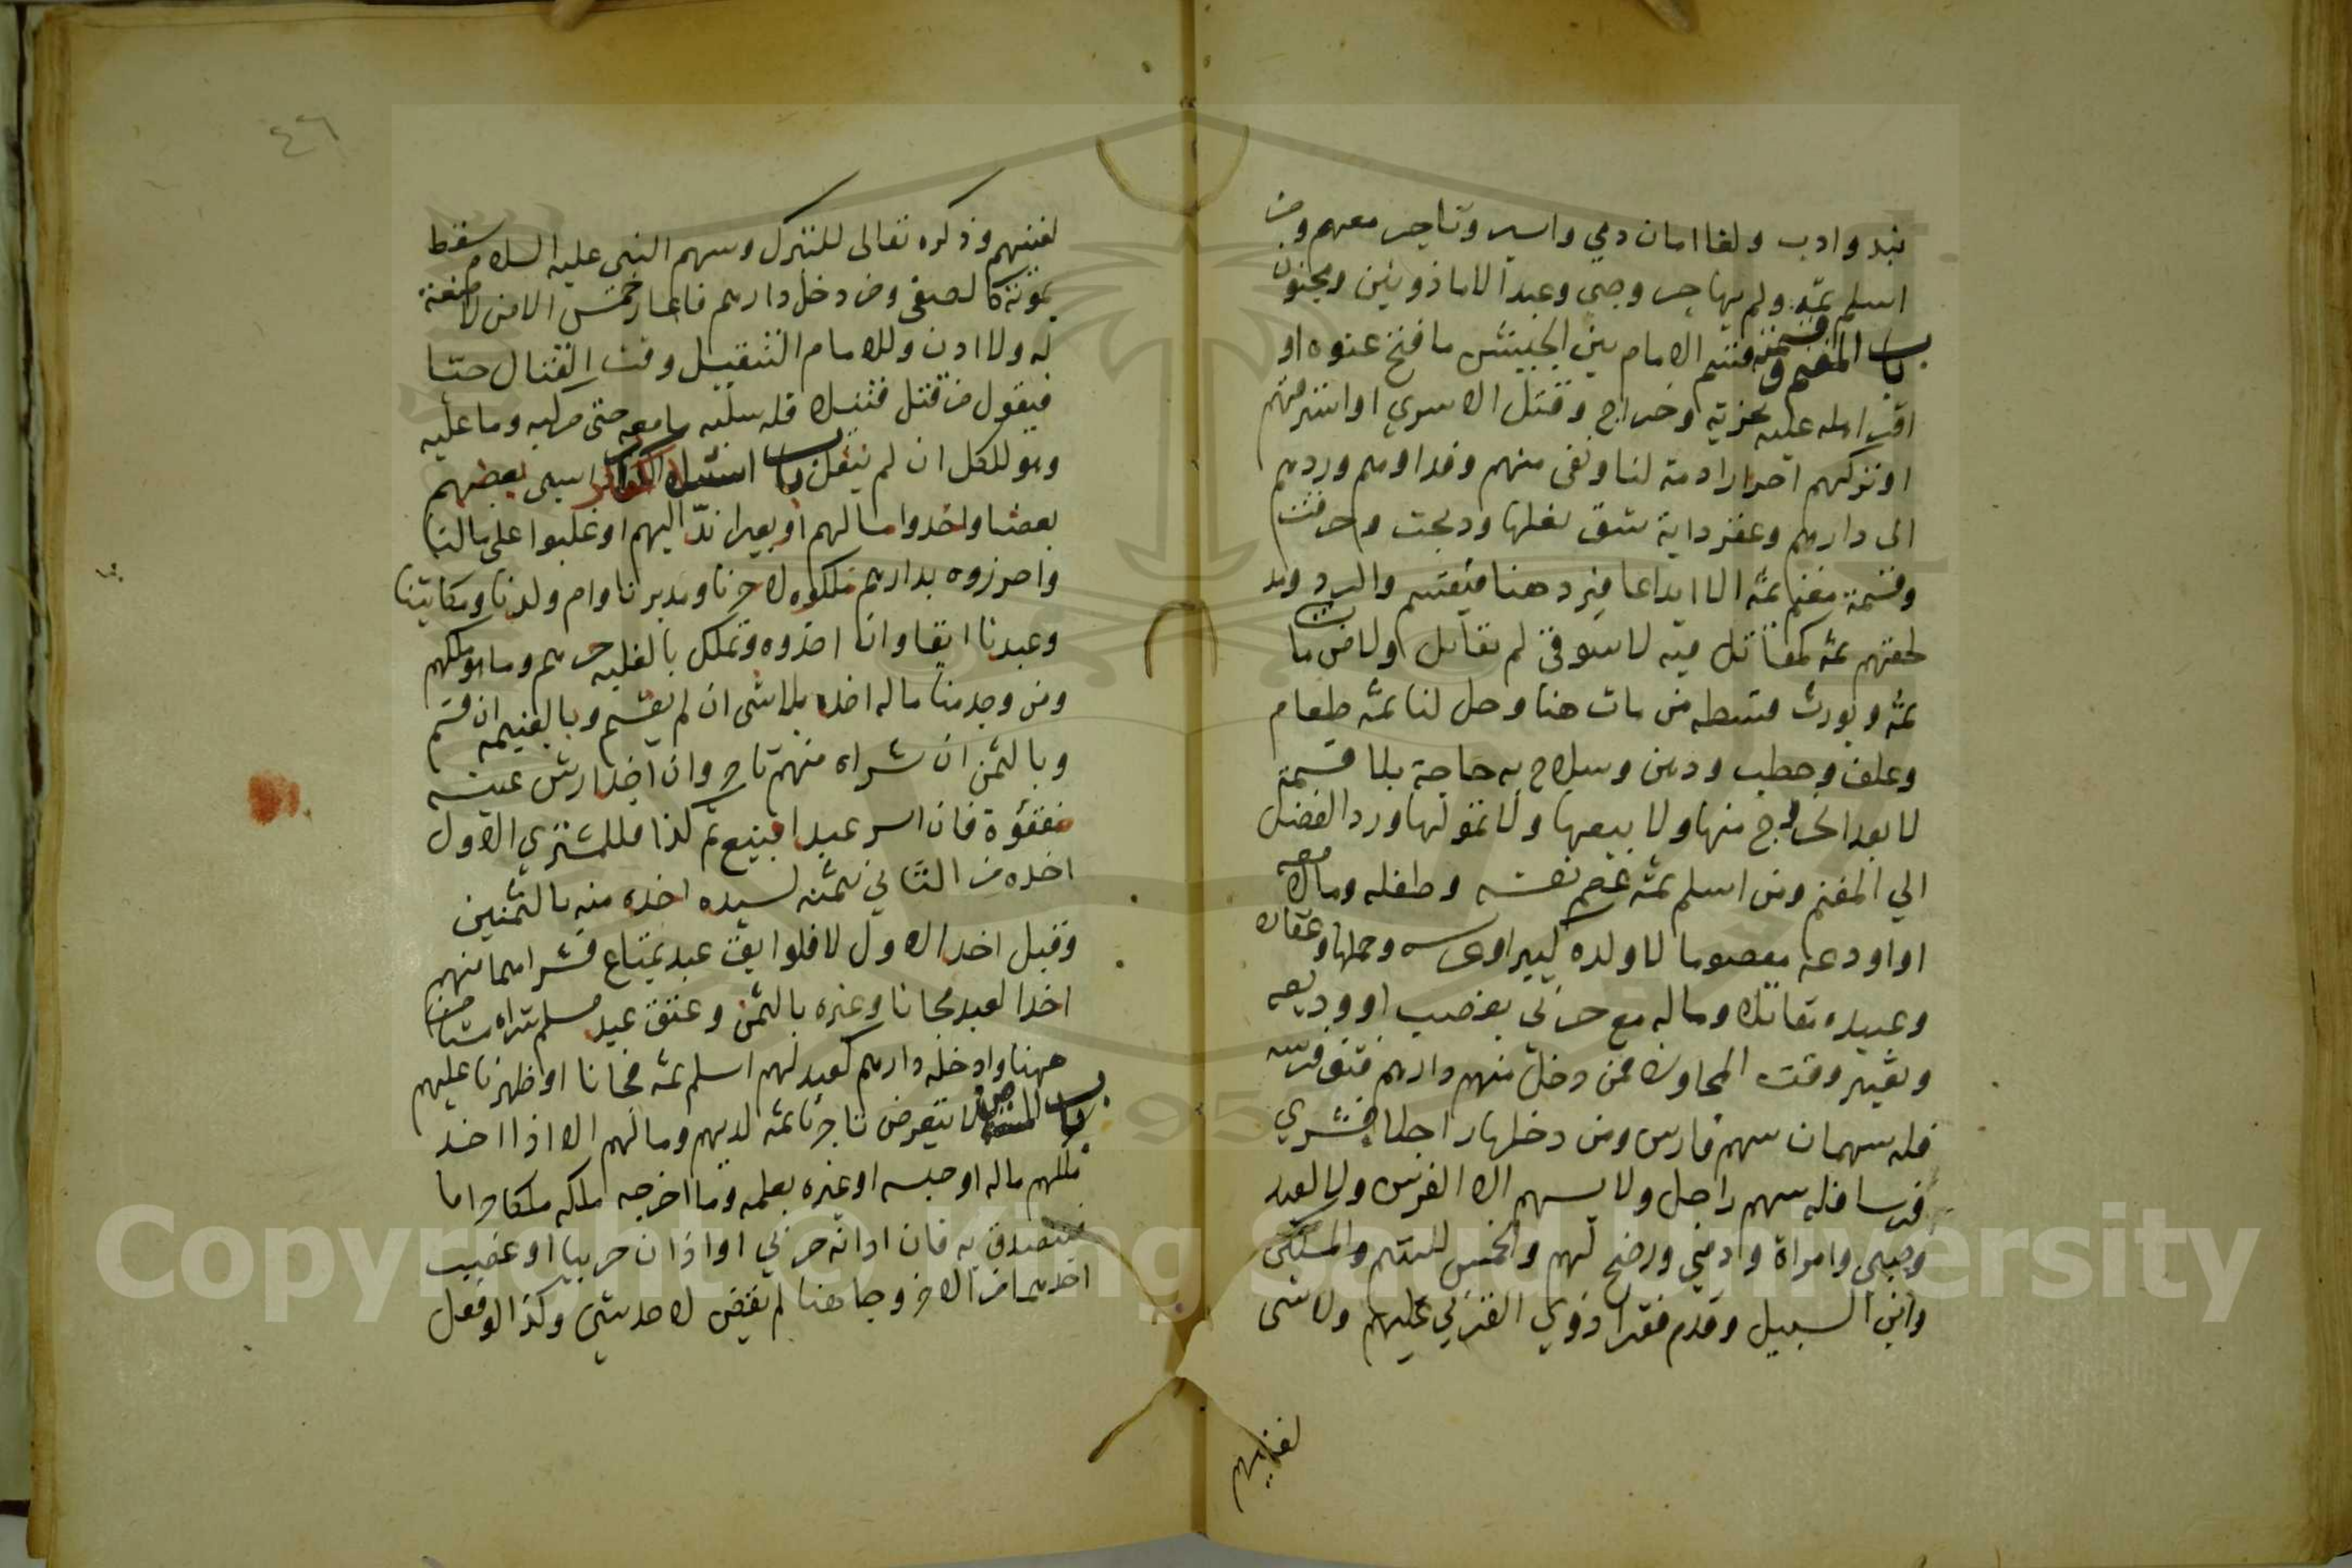 نبذ وادب ولغا امان ذمي واسير وتاجر معهم ومن
اسلم ثمه ولم يهاجر وصبي وعبد الا ماذونين ومجنون
باب المغنم وقسمته قسم الامام بين الجيش ما فتح عنوة او
اقر اهله عليه بجزية وخراج وقتل الاسرى او استرقهم
او تركهم احرارا ذمة لنا ونفى منهم وفداوهم وردهم
الى دارهم وعقر دابة شق نقلها وذبحت وحرقت
وقسمة مغنم ثمه الا ايداعا فيرد هنا فيقسم والرد ومدد
لحقهم ثمه كمقاتل فيه لا سوقي لم يقاتل ولا من مات
ثمه ويورث قسطه من مات هنا وحل لنا ثمه طعام
وعلف وحطب ودهن وسلاح به حاجة بلا قسمة
لا بعد الخروج منها ولا بيعها ولا تمولها ورد الفضل
الي المغنم ومن اسلم ثمه عصم نفسه وطفله وما معه
او اودعه معصوما لا ولده كبيرا وعرسه وحملها وعقاره
وعبيده تقاتل وماله مع حربي بغصب او وديعه
ويعتبر وقت المجاوزة فمن دخل منهم دارهم فنفق فرسه
فله سهمان سهم فارس ومن دخلها راجلا فشري
فرسا فله سهم راجل ولا يسهم الا لفرس ولا لعبد
وصبي وامراة وذمي ورضخ لهم والخمس لليتم والمسكين
وابن السبيل وقدم فقرا ذوي القربي عليهم ولا شى
لغنيهم
٤٦
لغنيهم وذكره تعالى للتبرك وسهم النبي عليه السلام سقط
بموته كالصفى ومن دخل دارهم فاغار خمس الا من لا منعة
له ولا اذن وللامام التنفيل وقت القتال حثا
فيقول من قتل قتيلا فله سلبه ما معه حتى مركبه وما عليه
وهو للكل ان لم ينفل باب استيلا الكفار اذا سبى بعضهم
بعضا واخذوا مالهم او بعيرا ند اليهم او غلبوا على مالنا
واحرزوه بدارهم ملكوه لا حرنا ومدبرنا وام ولدنا ومكاتبنا
وعبدنا ابقا وان اخذوه وتملك بالغلبه حرهم وما هو ملكهم
ومن وجد منا ماله اخذه بلا شى ان لم يقسم وبالقيمه ان قسم
وبالثمن ان شراه منهم تاجر وان اخذ ارش عينه
مفقؤة فان اسر عبدا فبيع ثم كذا فللمشتري الاول
اخذه من الثاني بثمنه لسيده اخذه منه بالثمنين
وقبل اخذ الاول لا فلو ابق عبد بمتاع فشراهما منهم
اخذ العبد مجانا وغيره بالثمن وعتق عبد مسلم شراه مستامن
ههنا وادخله دارهم كعبد لهم اسلم ثمه فجانا او ظهرنا عليهم
باب المستامن لا يتعرض تاجرنا ثمه لدمهم ومالهم الا اذا اخذ
ملكهم ماله او حبسه او غيره بعلمه وما اخرجه ملكه ملكا حراما
فيتصدق به فان ادانه حربي او ادان حربيا او غصب
احدهما من الاخر وجا هنا لم يقض لاحد بشي وكذا لو فعل